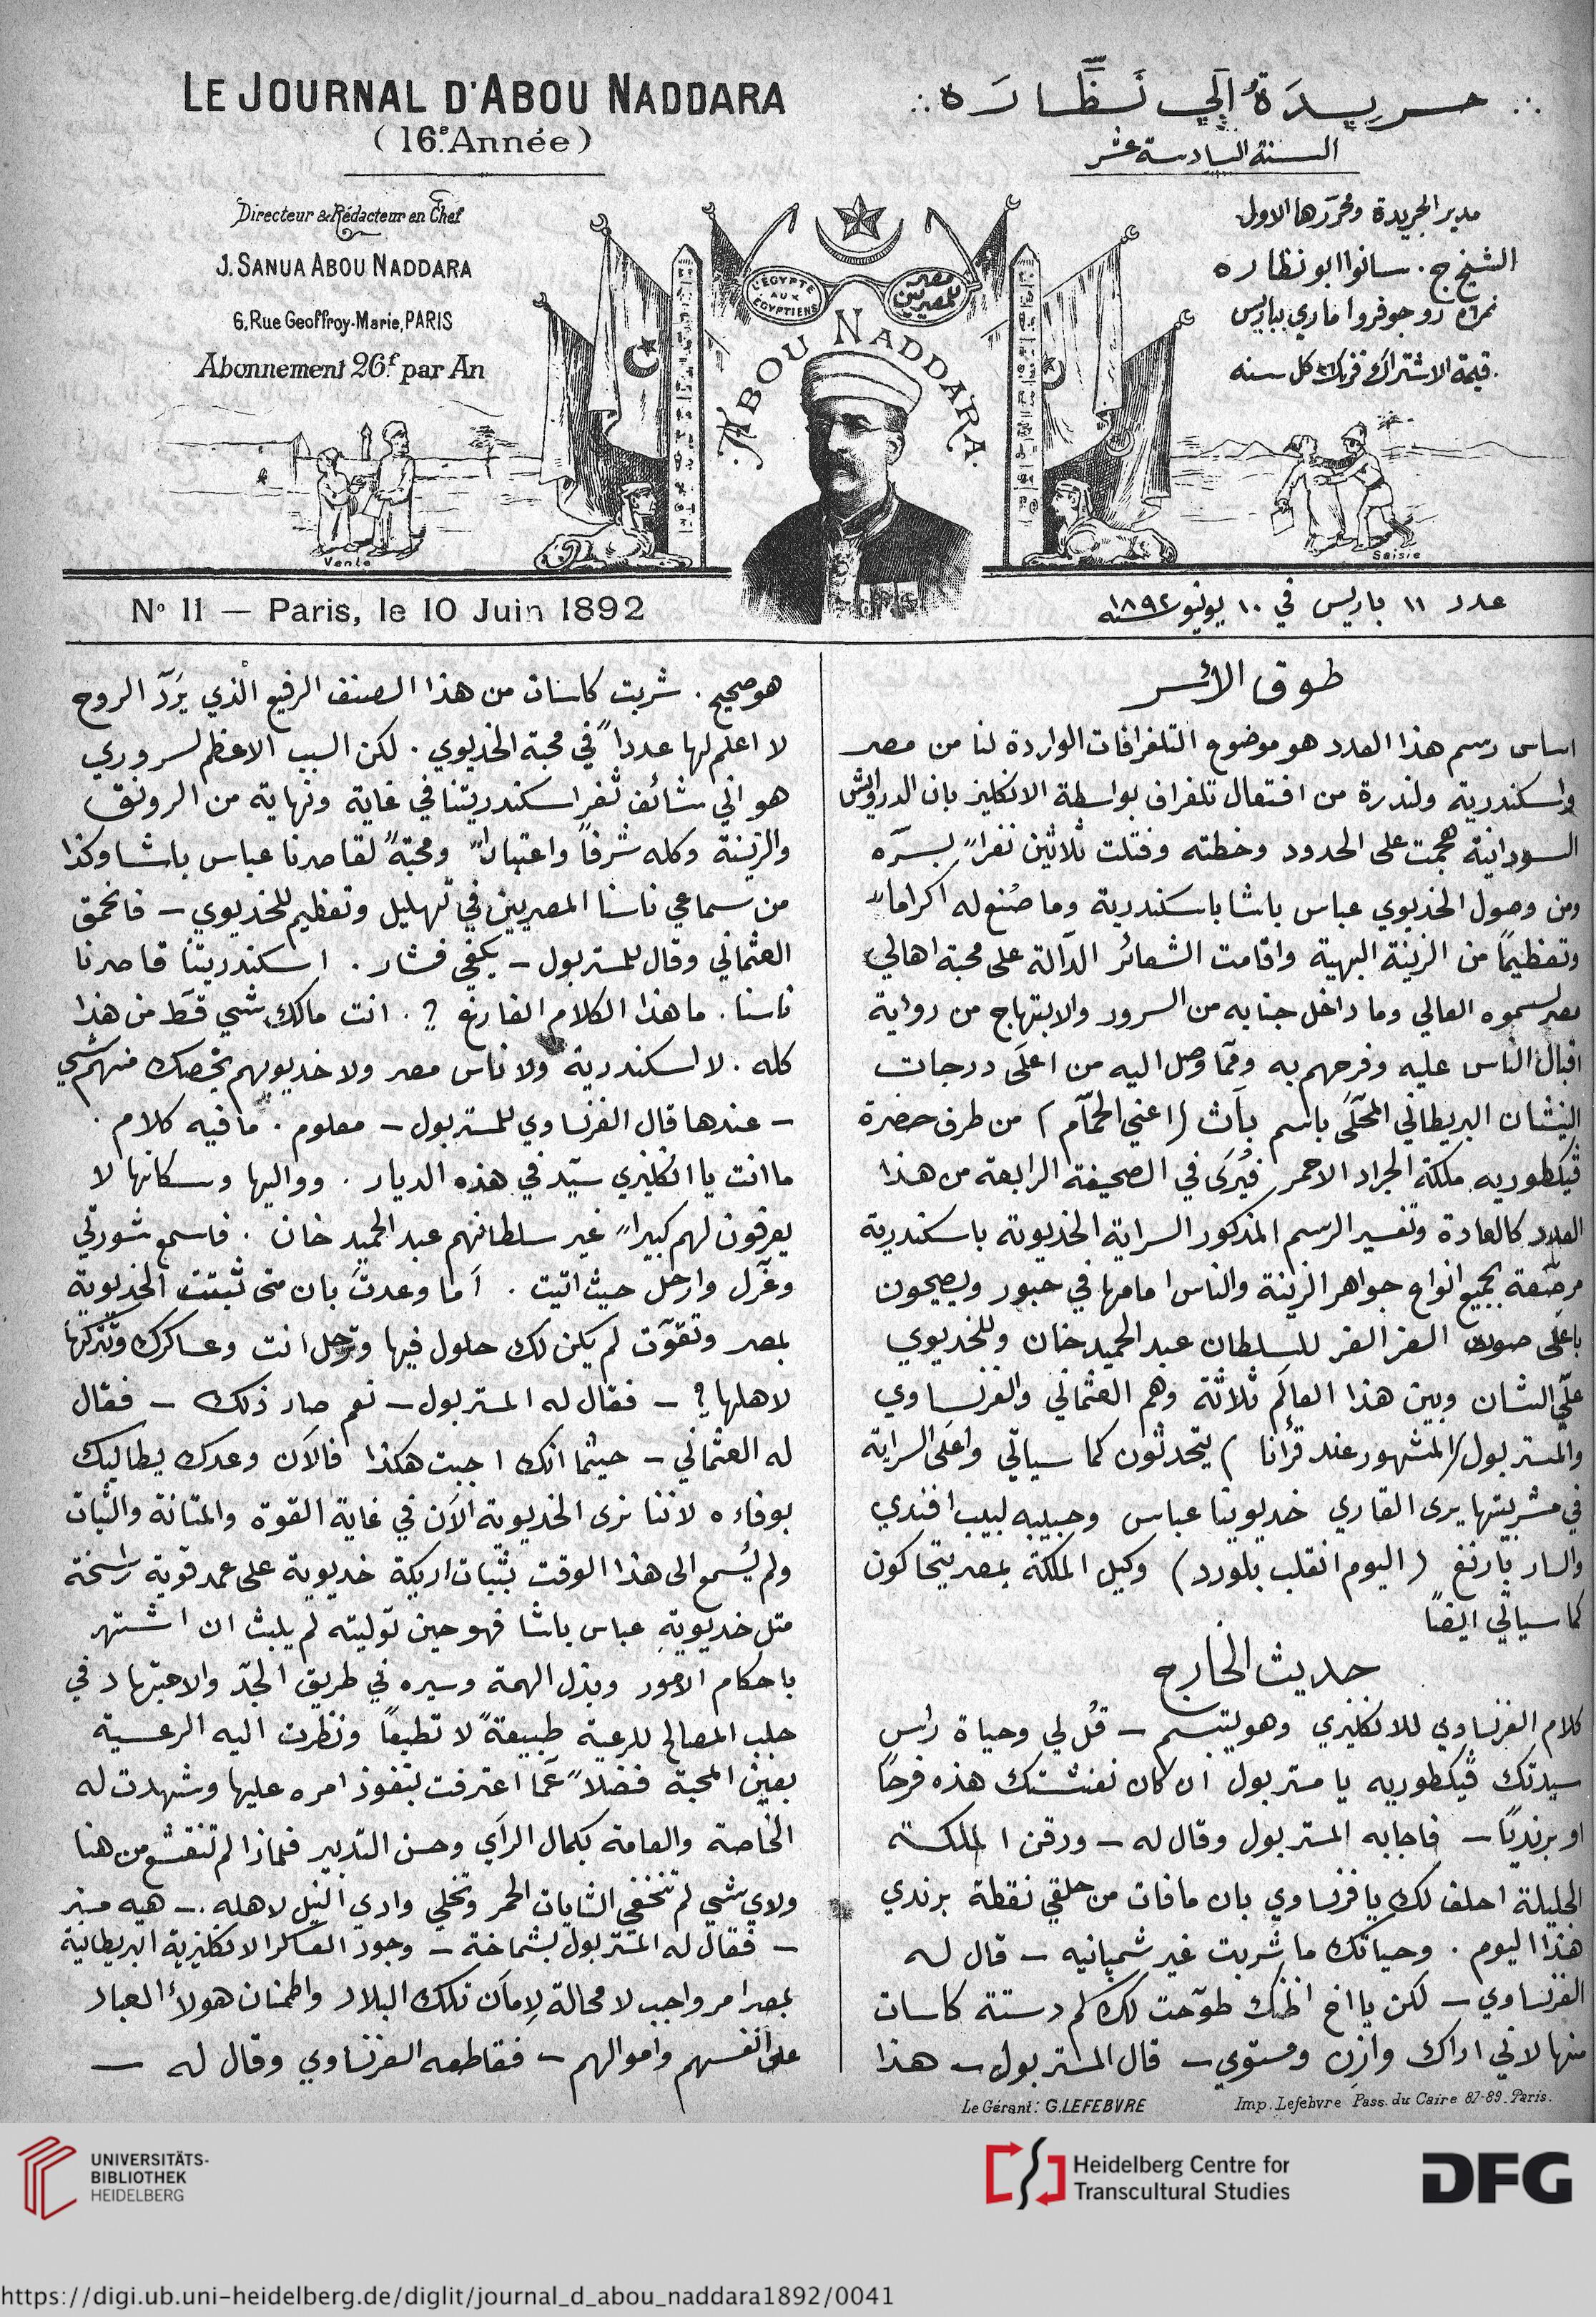 LE JOURNAL D'ABOU NADDARA
(16e. Année)
Directeur & Rédacteur en Chef
J. SANUA ABOU NADDARA
6, Rue Geoffroy-Marie, PARIS
Abonnement 26f. par An
جريدة ابي نظاره
السنة السادسة عشر
مدير الجريدة ومحررها الاول
الشيخ ج. سانوا ابو نظاره
نمرة ٦ رو جوفروا ماري بباريس
قيمة الاشتراك فرنك ٢٦ كل سنه
L'ÉGYPTE AUX ÉGYPTIENS
مصر للمصريين
ABOU NADDARA
Vente
Saisie
No 11 — Paris, le 10 Juin 1892
عدد ١١ باريس في ١٠ يونيو سنه ١٨٩٢
طوق الأسر
اساس رسم هذا العدد هو موضوع التلغرافات الواردة لنا من مصر
واسكندرية ولندرة من افتعال تلغراف بواسطة الانكليز بان الدراويش
السودانية هجمت على الحدود وخطته وقتلت ثلاثين نفراً بسرّه
ومن وصول الخديوي عباس باشا باسكندرية وما صُنع له اكراماً
وتعظيمًا من الزينة البهية واقامت الشعائر الدّالة على محبة اهالي
مصر لسموه العالي وما داخل جنابه من السرور والابتهاج من رواية
اقبال الناس عليه وفرحهم به وممّا وصل اليه من اعلى درجات
النيشان البريطاني المحلّى باسم باث (اعني الحمّام) من طرف حضرة
ڤيكطوريه ملكة الجراد الاحمر فيُرى في الصحيفة الرابعة من هذا
العدد كالعادة وتفسير الرسم المذكور السراية الخديوية باسكندرية
مرصّعة بجميع انواع جواهر الزينة والناس امامها في حبور ويصيحون
باعلى صوت العز العز للسلطان عبد الحميد خان وللخديوي
عليّ الشان وبين هذا العالَم ثلاثة وهم العثماني والفرنساوي
والمستر بول (المشهور عند قرّانا) يتحدثون كما سياتي واعلى السراية
في مشربيتها يرى القاري خديوينا عباس وحبيبه لبيب افندي
والسار بارنغ (اليوم انقلب بلورد) وكيل الملكة بمصر يتحاكون
كما سياتي ايضًا
حديث الخارج
كلام الفرنساوي للانكليزي وهو يتبسم – قُل لي وحياة راس
سيدتك ڤيكطوريه يا مستر بول ان كان نعنشتك هذه فرحًا
او برنديًا – فاجابه المستر بول وقال له – ودقن الملكة
الجليلة احلف لك يا فرنساوي بان ما فات من حلقي نقطة برندي
هذا اليوم. وحياتك ما شربت غير شمبانيه – قال له
الفرنساوي – لكن يا اخ اظنك طوّحت لك كم دستة كاسات
منها لاني اراك وازن ومستوي – قال المستر بول – هذا
هو صحيح. شربت كاسات من هذا الصنف الرفيع الذي يَردّ الروح
لا اعلم لها عدداً في محبة الخديوي. لكن السبب الاعظم لسروري
هو اني شائف ثغر اسكندريتنا في غاية ونهاية من الرونق
والزينة وكله شرفاً واعتباراً ومحبةً لقاصرنا عباس باشا وكذا
من سماعي ناسنا المصريين في تهليل وتعظيم للخديوي – فانحمق
العثماني وقال للمستر بول – يكفي فشار. اسكندريتنا قاصرنا
ناسنا. ما هذا الكلام الفارغ ?. انت مالك شي قَط من هذا
كله. لا اسكندرية ولا ناس مصر ولا خديويهم يخصك منهم شي
– عندها قال الفرنساوي للمستر بول – معلوم. ما فيه كلام.
ما انت يا انكليزي سيّد في هذه الديار. وواليها وسكانها لا
يعرفون لهم كبيراً غير سلطانهم عبد الحميد خان. فاسمع شورتي
وعزّل وارحل حيث اتيت. أما وعدت بان متى ثبتت الخديوية
بمصر وتقوّت لم يكن لك حلول فيها وترحل انت وعساكرك وتتركها
لاهلها ? – فقال له المستر بول – نعم صار ذلك – فقال
له العثماني – حيثما انك اجبت هكذا فالآن وعدك يطالبك
بوفاءه لاننا نرى الخديوية الآن في غاية القوة والمتانة والثبات
ولم يُسمع الى هذا الوقت بثبات اريكة خديوية على عمد قوية راسخة
مثل خديوية عباس باشا فهو حين توليته لم يلبث ان اشتهر
باحكام الامور وبذل الهمة وسيره في طريق الجدّ والاجتهاد في
جلب المصالح للرعية طبيعةً لا تطبعاً ونظرت اليه الرعية
بعين المحبة فضلاً عمّا اعترفت بنفوذ امره عليها وشهدت له
الخاصة والعامة بكمال الراي وحسن التدبير فلماذا لم تنقشع من هنا
ولاي شي لم تختفي الثنايات الحمر وتخلي وادي النيل لاهله. – هيه مستر
– فقال له المستر بول بشماخة – وجود العساكر الانكليزية البريطانية
بمصر امر واجب لا محالة لامان تلك البلاد واطمئنان هولاء العباد
على انفسهم واموالهم – فقاطعه الفرنساوي وقال له –
Le Gérant: G. LEFEBVRE
Imp. Lefebvre Pass. du Caire 87-89. Paris.
UNIVERSITÄTS-
BIBLIOTHEK
HEIDELBERG
Heidelberg Centre for
Transcultural Studies
DFG
https://digi.ub.uni-heidelberg.de/diglit/journal_d_abou_naddara1892/0041